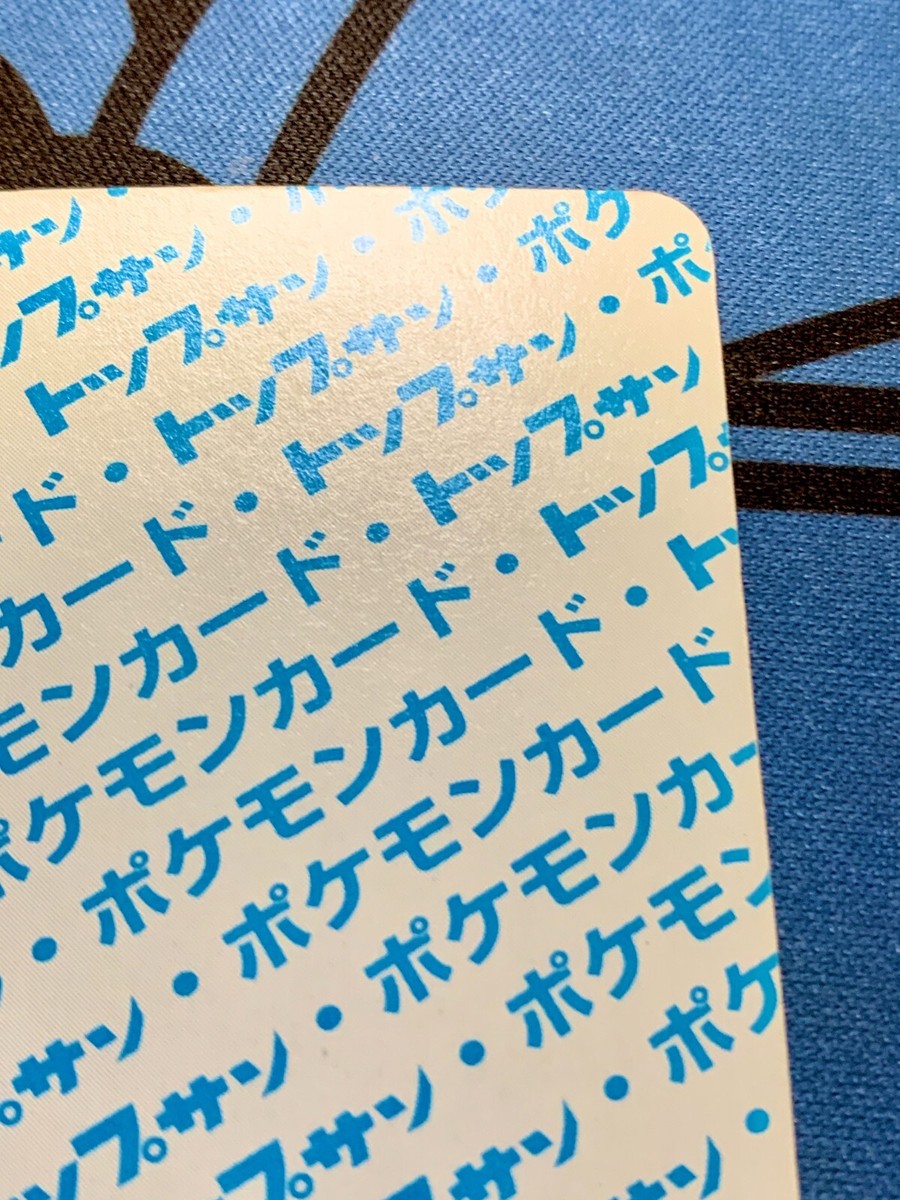 サン・
プサン・ポ
トップサン・ポ
ド・トップサン・ポケ
カード・トップサン・ポ
モンカード・トップサン
ポケモンカード・トップ
・ポケモンカード・トッ
サン・ポケモンカード
ップサン・ポケモンカー
プサン・ポケモン
サン・ポケ
サン・